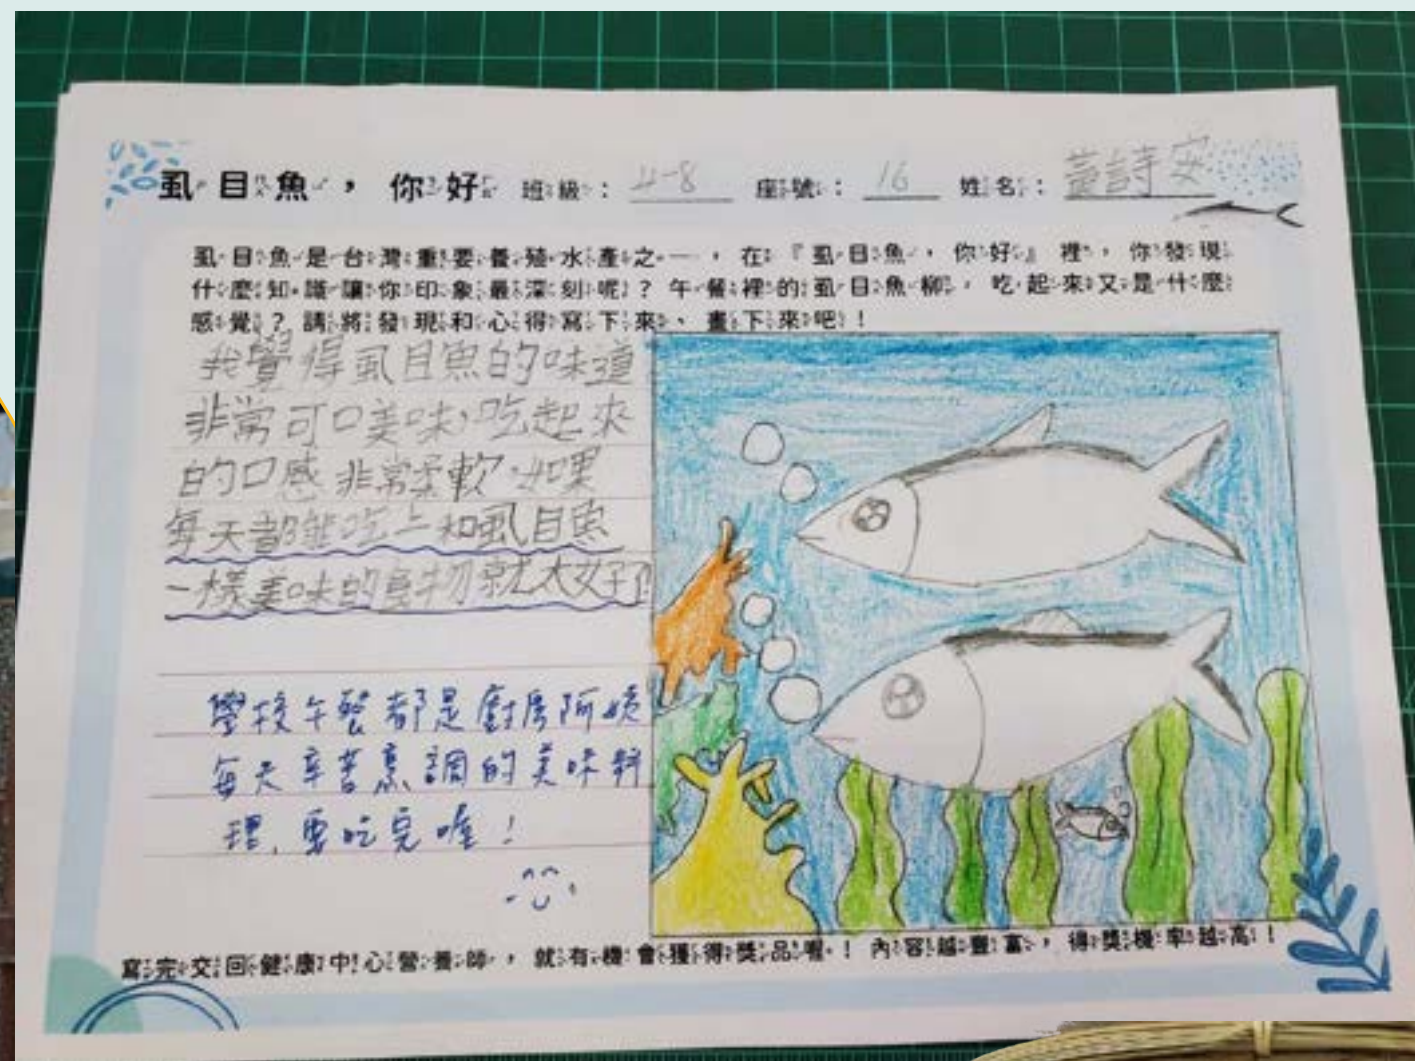 虱目魚，你好 班級：4-8 座號：16 姓名：黃詩安
虱目魚是台灣重要養殖水產之一，在『虱目魚，你好』裡，你發現
什麼知識讓你印象最深刻呢？午餐裡的虱目魚柳，吃起來又是什麼
感覺？請將發現和心得寫下來、畫下來吧！
我覺得虱目魚的味道
非常可口美味，吃起來
的口感非常柔軟，如果
每天都能吃上和虱目魚
一樣美味的食物就太好了
學校午餐都是廚房阿姨
每天辛苦烹調的美味料
理，要吃完喔！
寫完交回健康中心營養師，就有機會獲得獎品喔！內容越豐富，得獎機率越高！